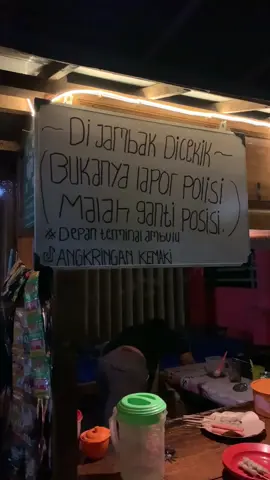 ~ Di jambak Dicekik ~
(Bukanya lapor polisi)
(Malah ganti posisi.)
* Depan terminal ambulu
ANGKRINGAN KEMAKI